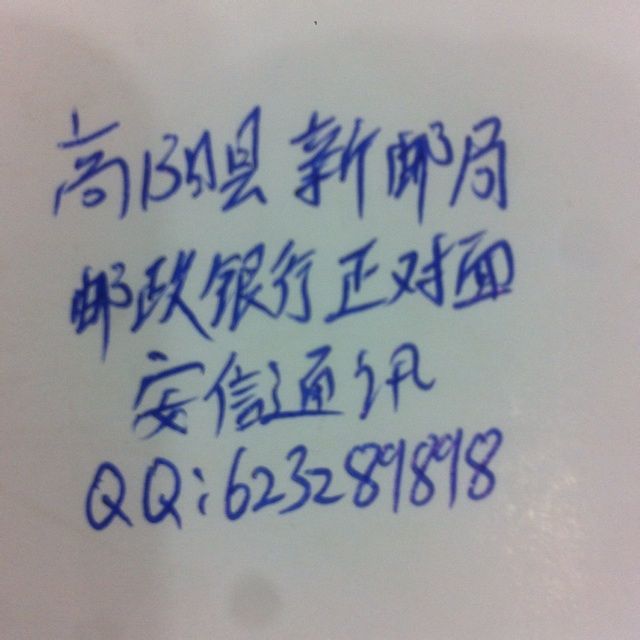 高阳县新邮局
邮政银行正对面
安信通讯
QQ:623289898